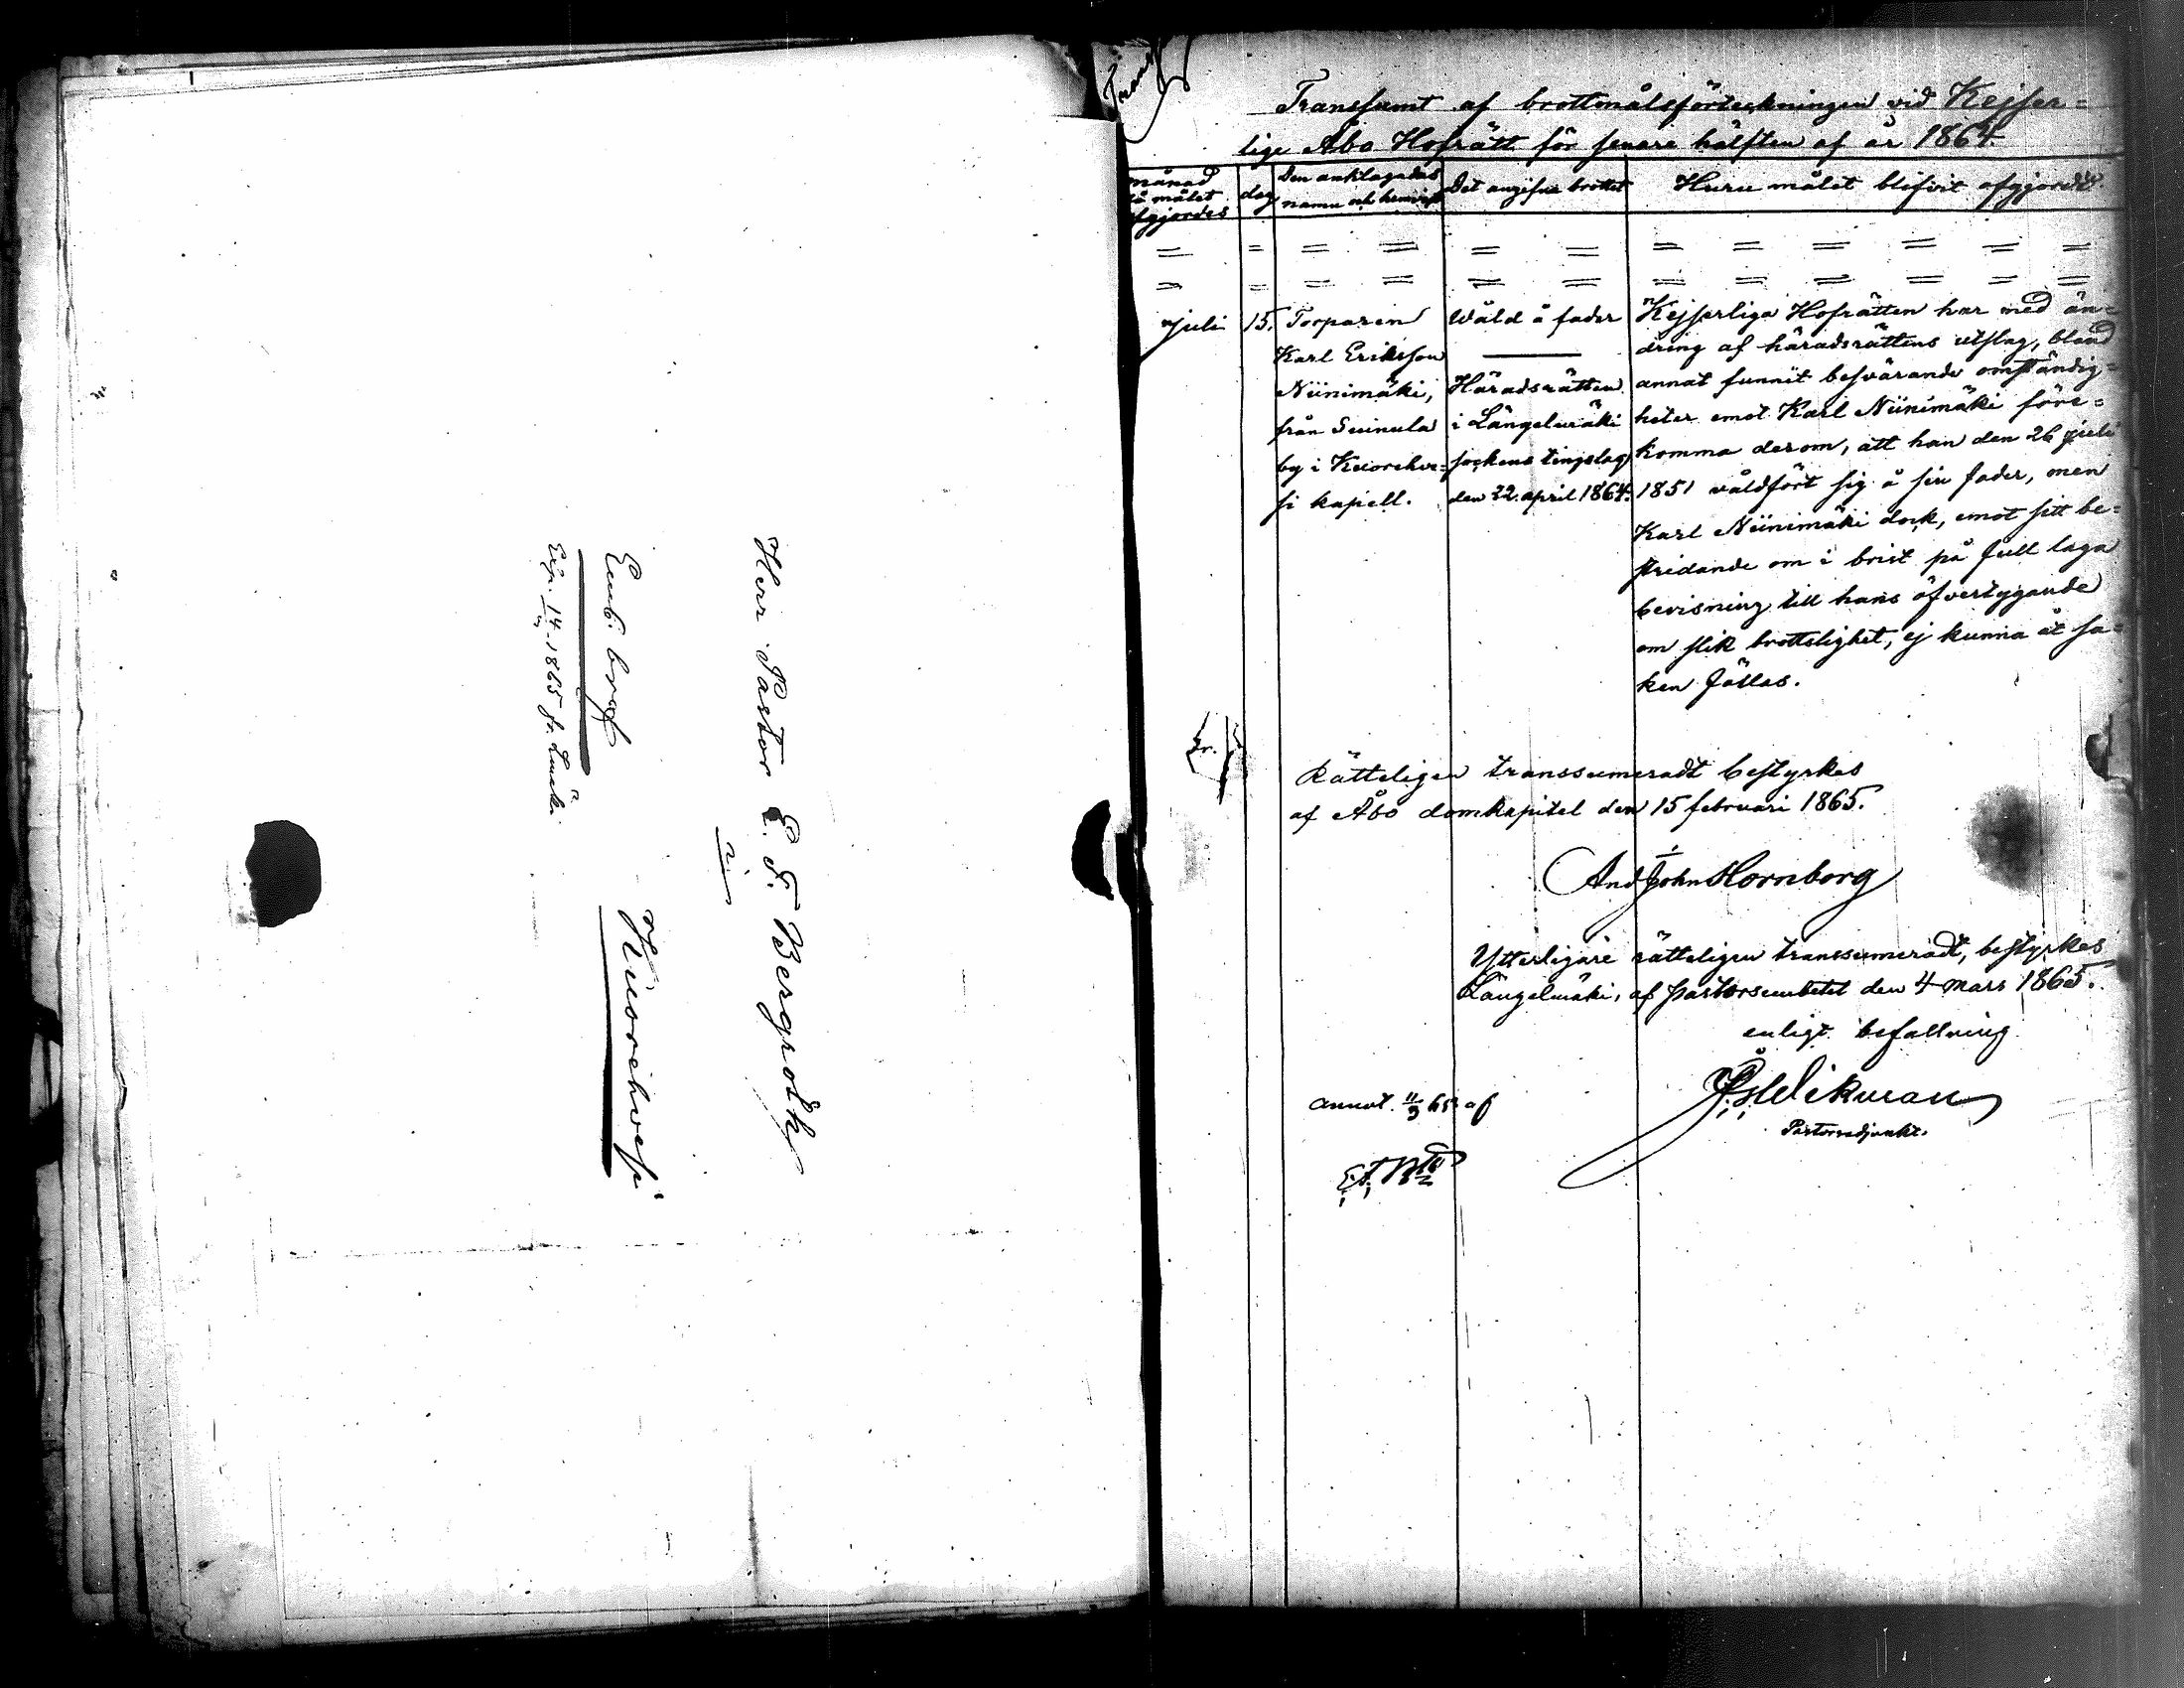 Herr Pastor E. F. Bergroth
Emb. bref
Kuorehvesi
Exp. 14 1865 fr.
Transsumt af brottmålsförteckningen vid Kejser=
lige Åbo Hofrätt för senare hälften af år 1864.
månad
då målet
afgjordes
dag
Den anklagades
namn och hemvist
Det angifna brottet
Huru målet blifvit afgjordt.
Juli
15.
Torparen
Karl Eriksson
Niinimäki,
från Suinula
by i Kuorehve=
si kapell.
Wåld å fader
Häradsrätten
i Längelmäki
sockens tingslag
den 22. april 1864.
Kejserliga Hofrätten har med än=
dring af häradsrättens utslag, bland
annat funnit besvärande omständig=
heter emot Karl Niinimäki före=
komma derom, att han den 26 juli
1851 våldfört sig å sin fader, men
Karl Niinimäki dock, emot sitt be=
stridande om i brist på full laga
bevisning till hans öfvertygande
om slik brottslighet, ej kunna åt sa=
ken fällas.
Rätteligen transsumeradt bestyrkes
af Åbo domkapitel den 15 februari 1865.
And John Hornborg
Ytterligare rätteligen transsumeradt, bestyrkes
Längelmäki, af pastorsembetet den 4 mars 1865.
enligt befallning
Wikman
Pastorsadjunkt.
Annot. 11/3 65 af